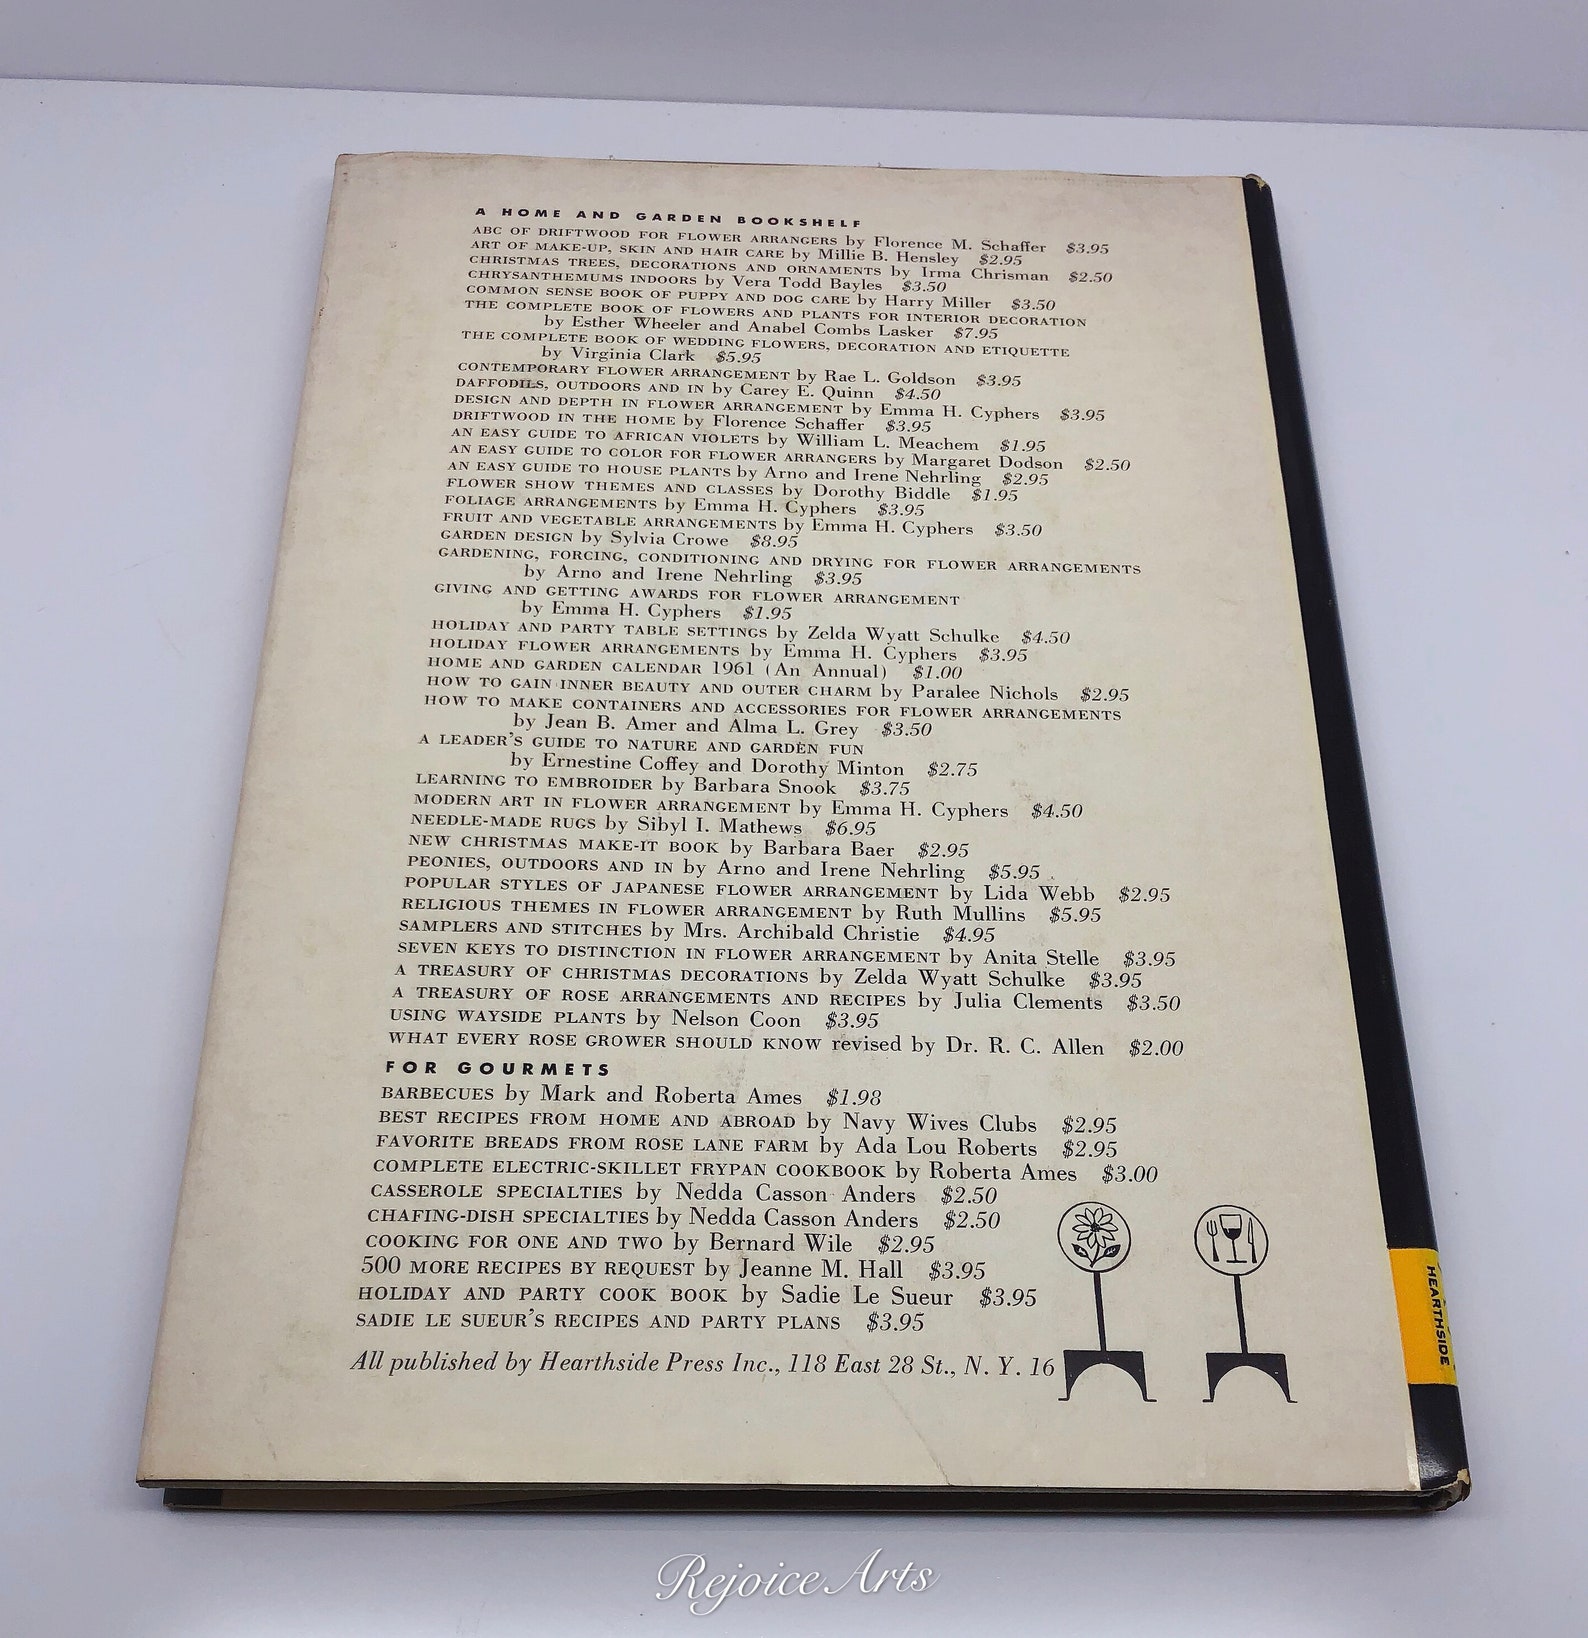 A HOME AND GARDEN BOOKSHELF
ABC OF DRIFTWOOD FOR FLOWER ARRANGERS by Florence M. Schaffer $3.95
ART OF MAKE-UP, SKIN AND HAIR CARE by Millie B. Hensley $2.95
CHRISTMAS TREES, DECORATIONS AND ORNAMENTS by Irma Chrisman $2.50
CHRYSANTHEMUMS INDOORS by Vera Todd Bayles $3.50
COMMON SENSE BOOK OF PUPPY AND DOG CARE by Harry Miller $3.50
THE COMPLETE BOOK OF FLOWERS AND PLANTS FOR INTERIOR DECORATION
by Esther Wheeler and Anabel Combs Lasker $7.95
THE COMPLETE BOOK OF WEDDING FLOWERS, DECORATION AND ETIQUETTE
by Virginia Clark $5.95
CONTEMPORARY FLOWER ARRANGEMENT by Rae L. Goldson $3.95
DAFFODILS, OUTDOORS AND IN by Carey E. Quinn $4.50
DESIGN AND DEPTH IN FLOWER ARRANGEMENT by Emma H. Cyphers $3.95
DRIFTWOOD IN THE HOME by Florence Schaffer $3.95
AN EASY GUIDE TO AFRICAN VIOLETS by William L. Meachem $1.95
AN EASY GUIDE TO COLOR FOR FLOWER ARRANGERS by Margaret Dodson $2.50
AN EASY GUIDE TO HOUSE PLANTS by Arno and Irene Nehrling $2.95
FLOWER SHOW THEMES AND CLASSES by Dorothy Biddle $1.95
FOLIAGE ARRANGEMENTS by Emma H. Cyphers $3.95
FRUIT AND VEGETABLE ARRANGEMENTS by Emma H. Cyphers $3.50
GARDEN DESIGN by Sylvia Crowe $8.95
GARDENING, FORCING, CONDITIONING AND DRYING FOR FLOWER ARRANGEMENTS
by Arno and Irene Nehrling $3.95
GIVING AND GETTING AWARDS FOR FLOWER ARRANGEMENT
by Emma H. Cyphers $1.95
HOLIDAY AND PARTY TABLE SETTINGS by Zelda Wyatt Schulke $4.50
HOLIDAY FLOWER ARRANGEMENTS by Emma H. Cyphers $3.95
HOME AND GARDEN CALENDAR 1961 (An Annual) $1.00
HOW TO GAIN INNER BEAUTY AND OUTER CHARM by Paralee Nichols $2.95
HOW TO MAKE CONTAINERS AND ACCESSORIES FOR FLOWER ARRANGEMENTS
by Jean B. Amer and Alma L. Grey $3.50
A LEADER'S GUIDE TO NATURE AND GARDEN FUN
by Ernestine Coffey and Dorothy Minton $2.75
LEARNING TO EMBROIDER by Barbara Snook $3.75
MODERN ART IN FLOWER ARRANGEMENT by Emma H. Cyphers $4.50
NEEDLE-MADE RUGS by Sibyl I. Mathews $6.95
NEW CHRISTMAS MAKE-IT BOOK by Barbara Baer $2.95
PEONIES, OUTDOORS AND IN by Arno and Irene Nehrling $5.95
POPULAR STYLES OF JAPANESE FLOWER ARRANGEMENT by Lida Webb $2.95
RELIGIOUS THEMES IN FLOWER ARRANGEMENT by Ruth Mullins $5.95
SAMPLERS AND STITCHES by Mrs. Archibald Christie $4.95
SEVEN KEYS TO DISTINCTION IN FLOWER ARRANGEMENT by Anita Stelle $3.95
A TREASURY OF CHRISTMAS DECORATIONS by Zelda Wyatt Schulke $3.95
A TREASURY OF ROSE ARRANGEMENTS AND RECIPES by Julia Clements $3.50
USING WAYSIDE PLANTS by Nelson Coon $3.95
WHAT EVERY ROSE GROWER SHOULD KNOW revised by Dr. R. C. Allen $2.00
FOR GOURMETS
BARBECUES by Mark and Roberta Ames $1.98
BEST RECIPES FROM HOME AND ABROAD by Navy Wives Clubs $2.95
FAVORITE BREADS FROM ROSE LANE FARM by Ada Lou Roberts $2.95
COMPLETE ELECTRIC-SKILLET FRYPAN COOKBOOK by Roberta Ames $3.00
CASSEROLE SPECIALTIES by Nedda Casson Anders $2.50
CHAFING-DISH SPECIALTIES by Nedda Casson Anders $2.50
COOKING FOR ONE AND TWO by Bernard Wile $2.95
500 MORE RECIPES BY REQUEST by Jeanne M. Hall $3.95
HOLIDAY AND PARTY COOK BOOK by Sadie Le Sueur $3.95
SADIE LE SUEUR'S RECIPES AND PARTY PLANS $3.95
All published by Hearthside Press Inc., 118 East 28 St., N. Y. 16
HEARTHSIDE
Rejoice Arts